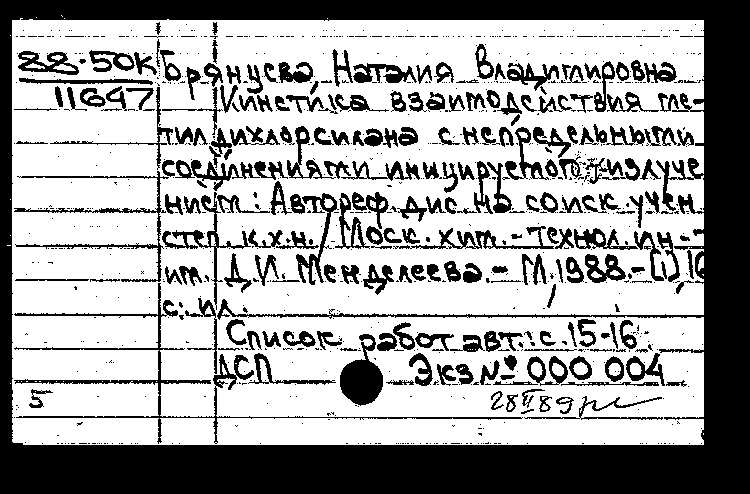 88-50к Брянцева, Наталия Владимировна
11647 Кинетика взаимодействия ме-
тилдихлорсилана с непредельными
соединениями инициируемого γ-излуче
нием: Автореф. дис. на соиск. учен
степ. к.х.н. / Моск. хим.-технол. ин-т
им. Д.И. Менделеева.- М., 1988.-[1], 16
с.: ил.
Список работ авт.: с. 15-16.
ДСП Экз № 000 004
5 28 II 89